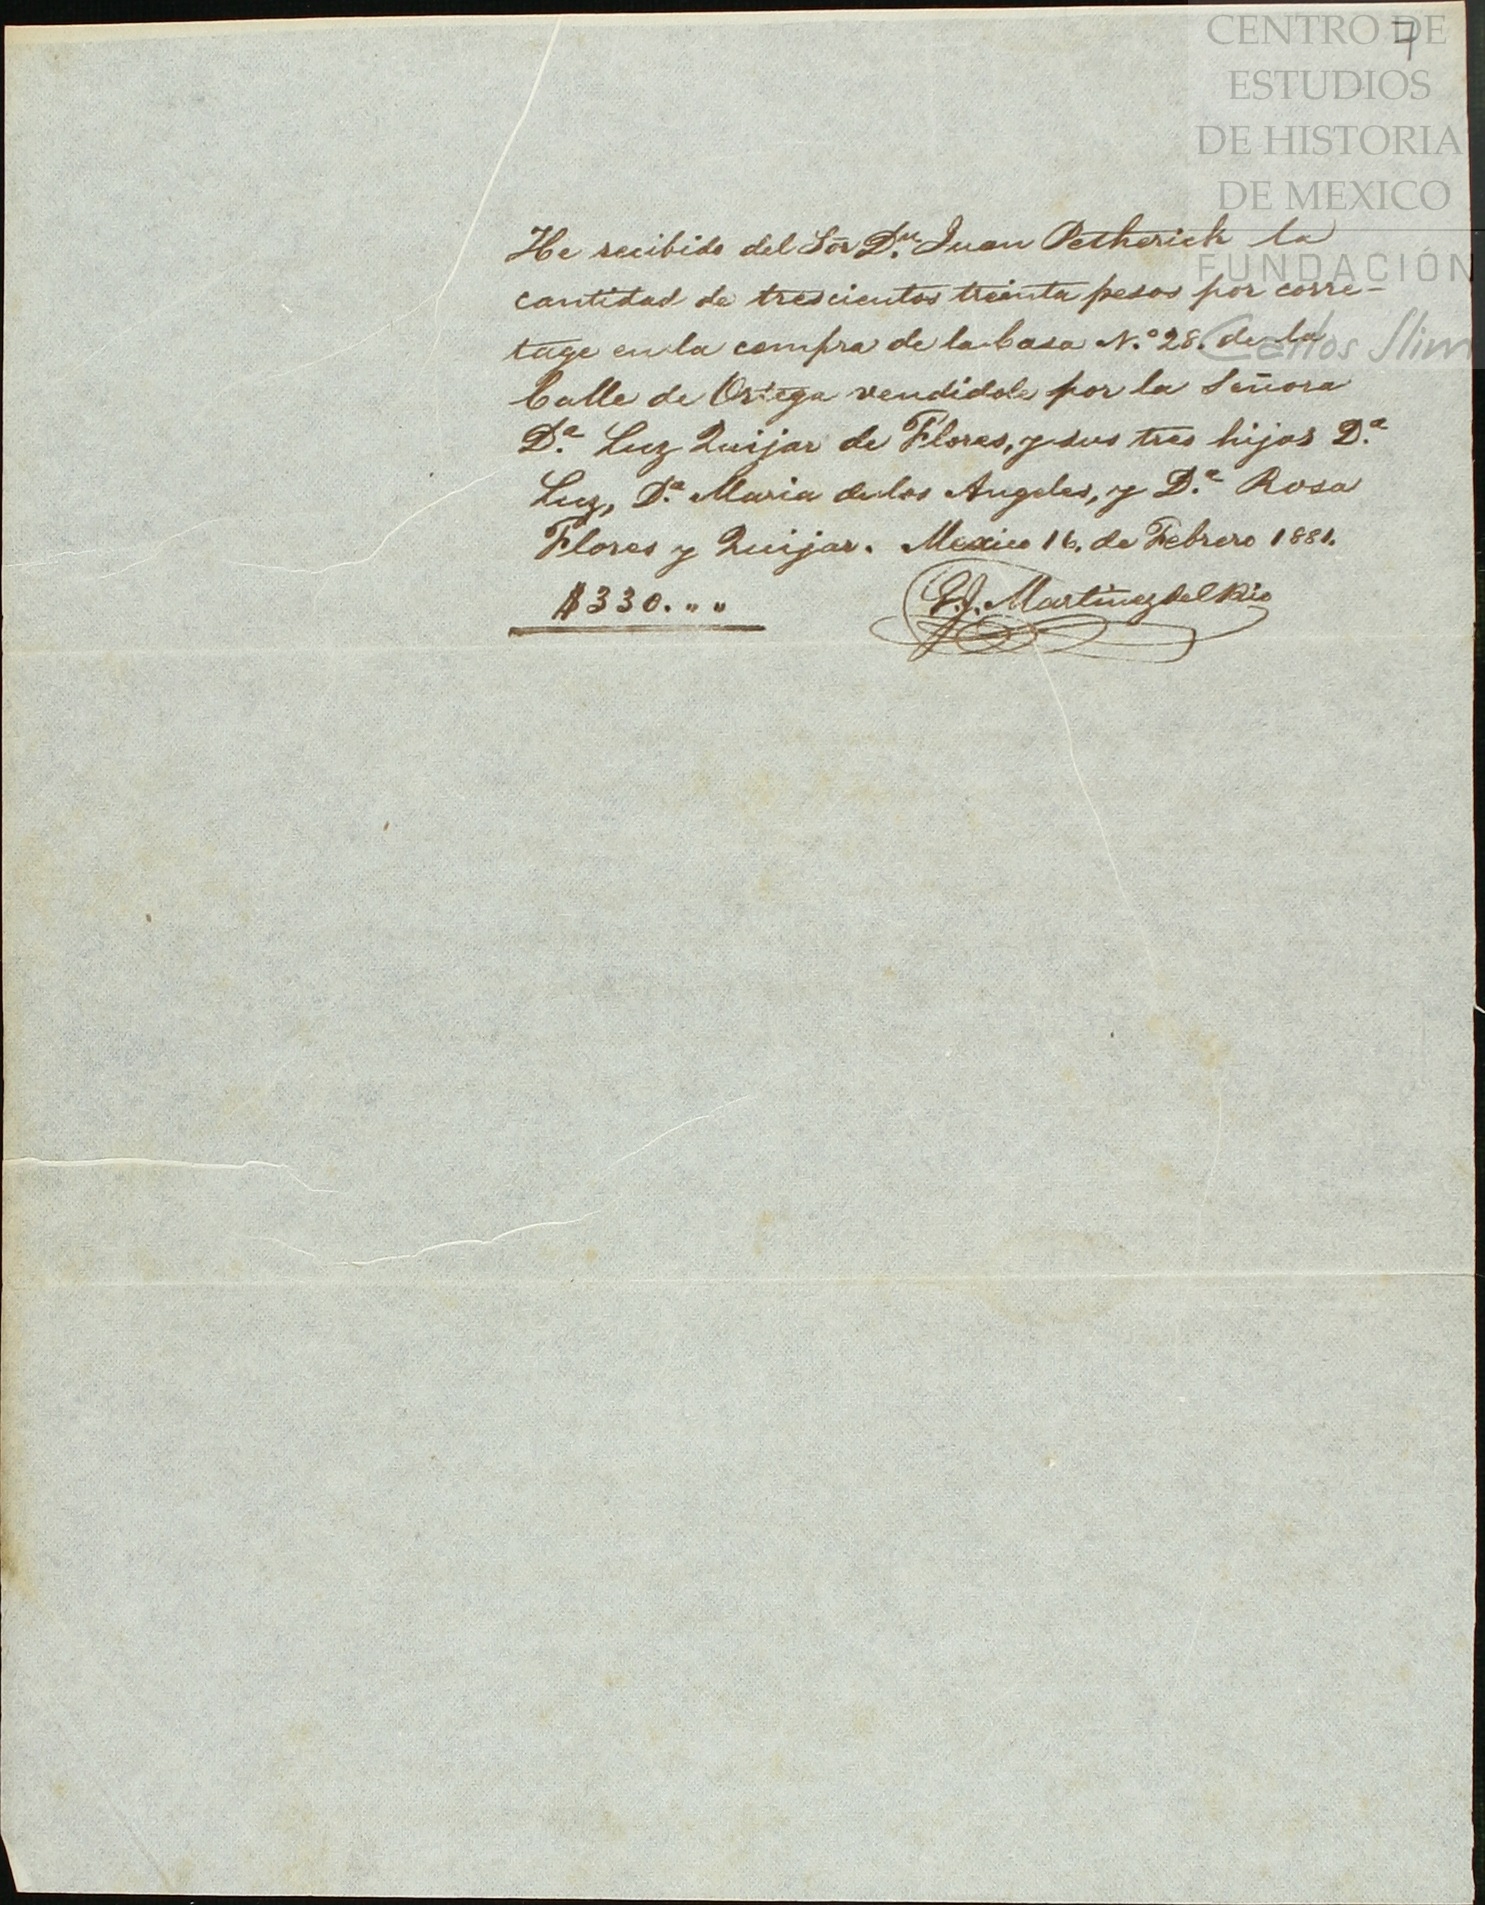 7
CENTRO DE
ESTUDIOS
DE HISTORIA
DE MEXICO
FUNDACIÓN
Carlos Slim
He recibido del Sõr D.n Juan Petherick la
cantidad de trescientos treinta pesos por corre-
tage en la compra de la Casa N.o 28. de la
Calle de Ortega vendidole por la Señora
D.a Luz Quijar de Flores, y sus tres hijas D.a
Luz, D.a Maria de los Angeles, y D.a Rosa
Flores y Quijar. Mexico 16. de Febrero 1881.
$330. " "
Martinez del Rio